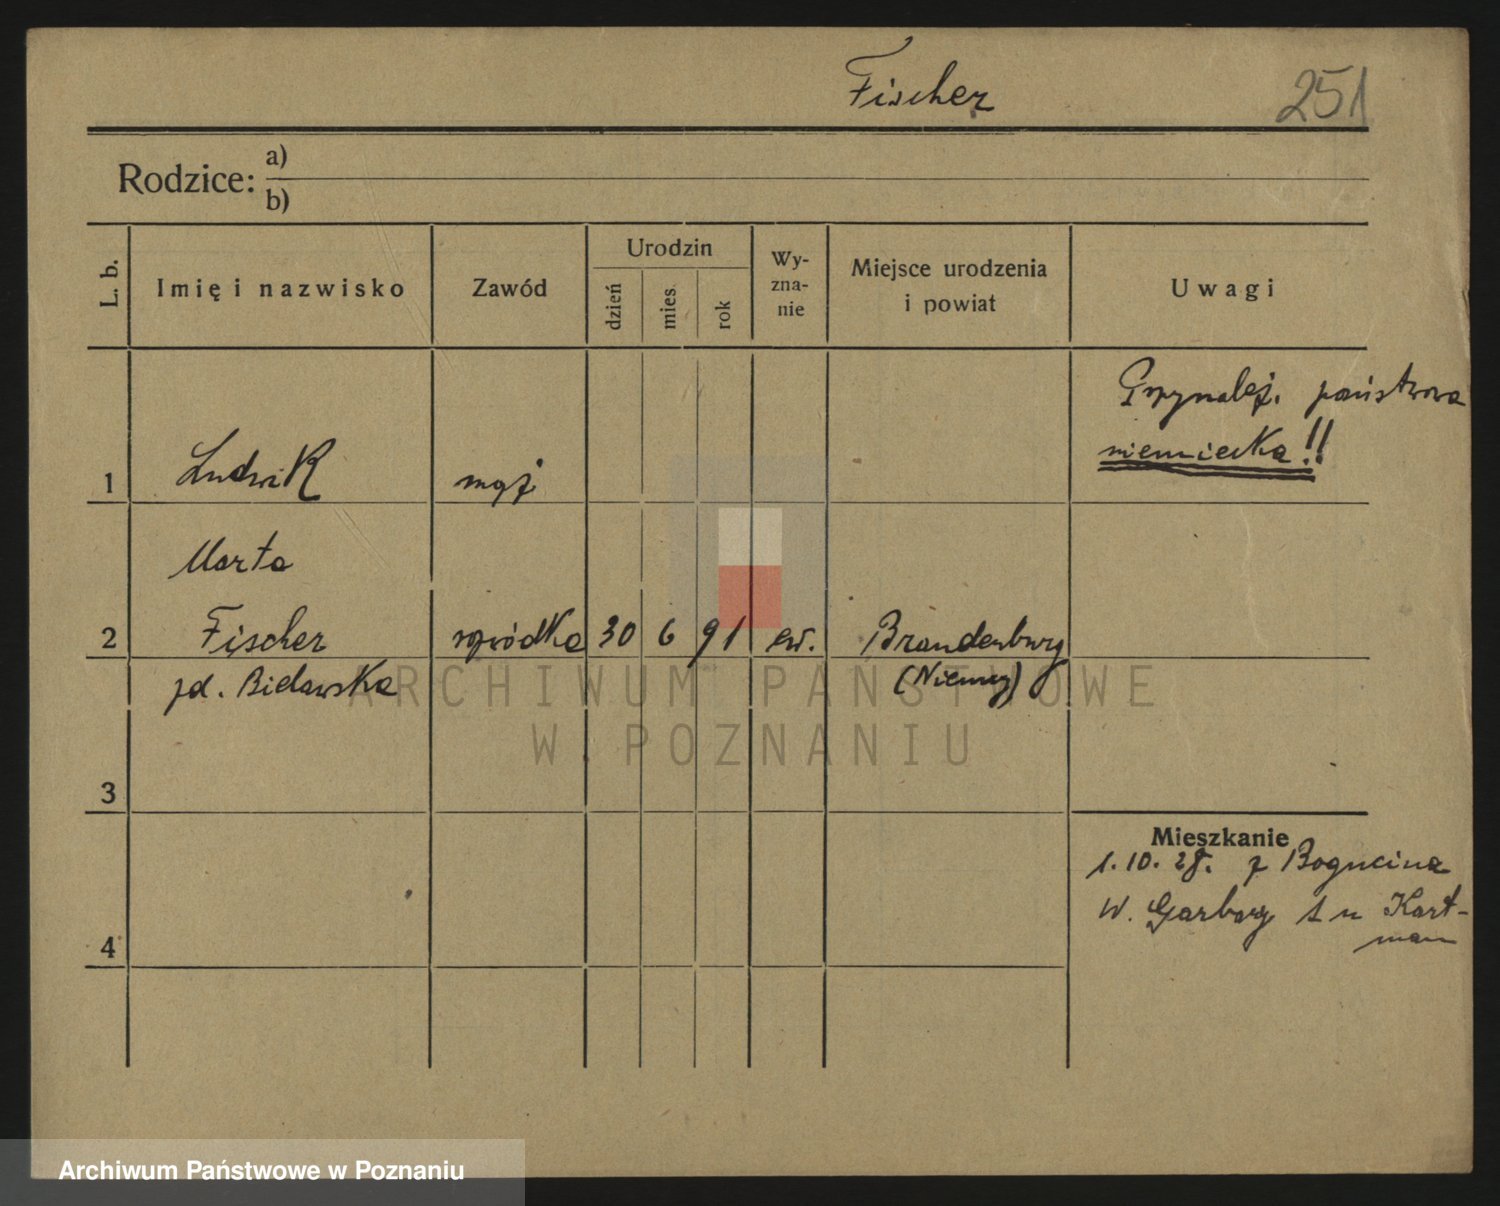 Fischer 251
Rodzice: a)
b)
L. b. Imię i nazwisko Zawód Urodzin dzień mies. rok Wy-
zna-
nie Miejsce urodzenia
i powiat Uwagi
państwowa
niemiecka!!
1 Ludwik mąż
Marta
2 Fischer rozwódka 30 6 91 ew. Brandenburg
zd. Bielawska (Niemcy)
3
Mieszkanie
1.10.28. z Bogucina
W. Garbary 1 u Hart-
mann
4
ARCHIWUM PAŃSTWOWE
W POZNANIU
Archiwum Państwowe w Poznaniu